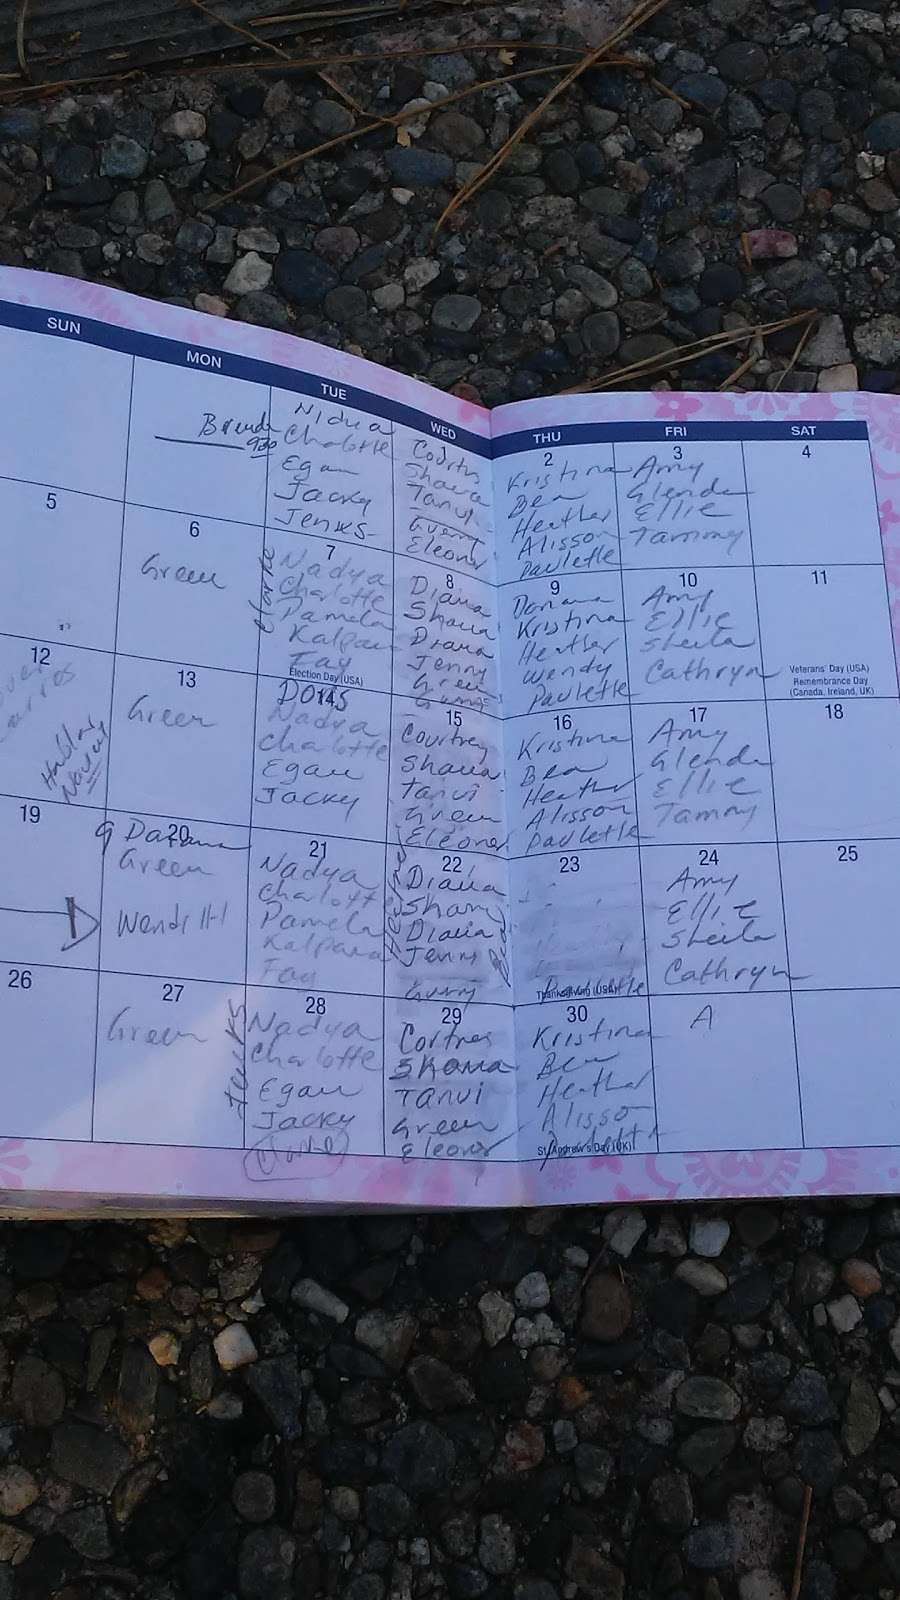 SUN
MON
TUE
WED
THU
FRI
SAT
930
Nidya
Charlotte
Egan
Jacky
Jenks
Shawa
Tanvi
Eleonor
2
Kristina
Ben
Heather
Alisson
Paulette
3
Amy
Glenda
Ellie
Tammy
4
5
6
Green
7
Nadya
Charlotte
Pamela
Kalpana
Fay
Election Day (USA)
8
Diana
Shawa
Diana
Jenny
Green
9
Kristina
Heather
Wendy
Paulette
10
Amy
Ellie
Sheila
Cathryn
11
Veterans' Day (USA)
Remembrance Day
(Canada, Ireland, UK)
12
Hablar
13
Green
14
DORS
Nadya
Charlotte
Egan
Jacky
15
Courtney
Shawa
Tanvi
Green
Eleonor
16
Kristina
Ben
Heather
Alisson
Paulette
17
Amy
Glenda
Ellie
Tammy
18
19
20
9
Green
21
Nadya
Charlotte
Pamela
Kalpana
Fay
22
Diana
Diana
Jenny
23
Thanksgiving (USA)
24
Amy
Ellie
Sheila
Cathryn
25
26
27
Green
28
Jenks
Nadya
Charlotte
Egan
Jacky
29
Cortnes
Shawa
Tanvi
Green
Eleonor
30
Kristina
Ben
Heather
Alisso
St. Andrew's Day (UK)
A